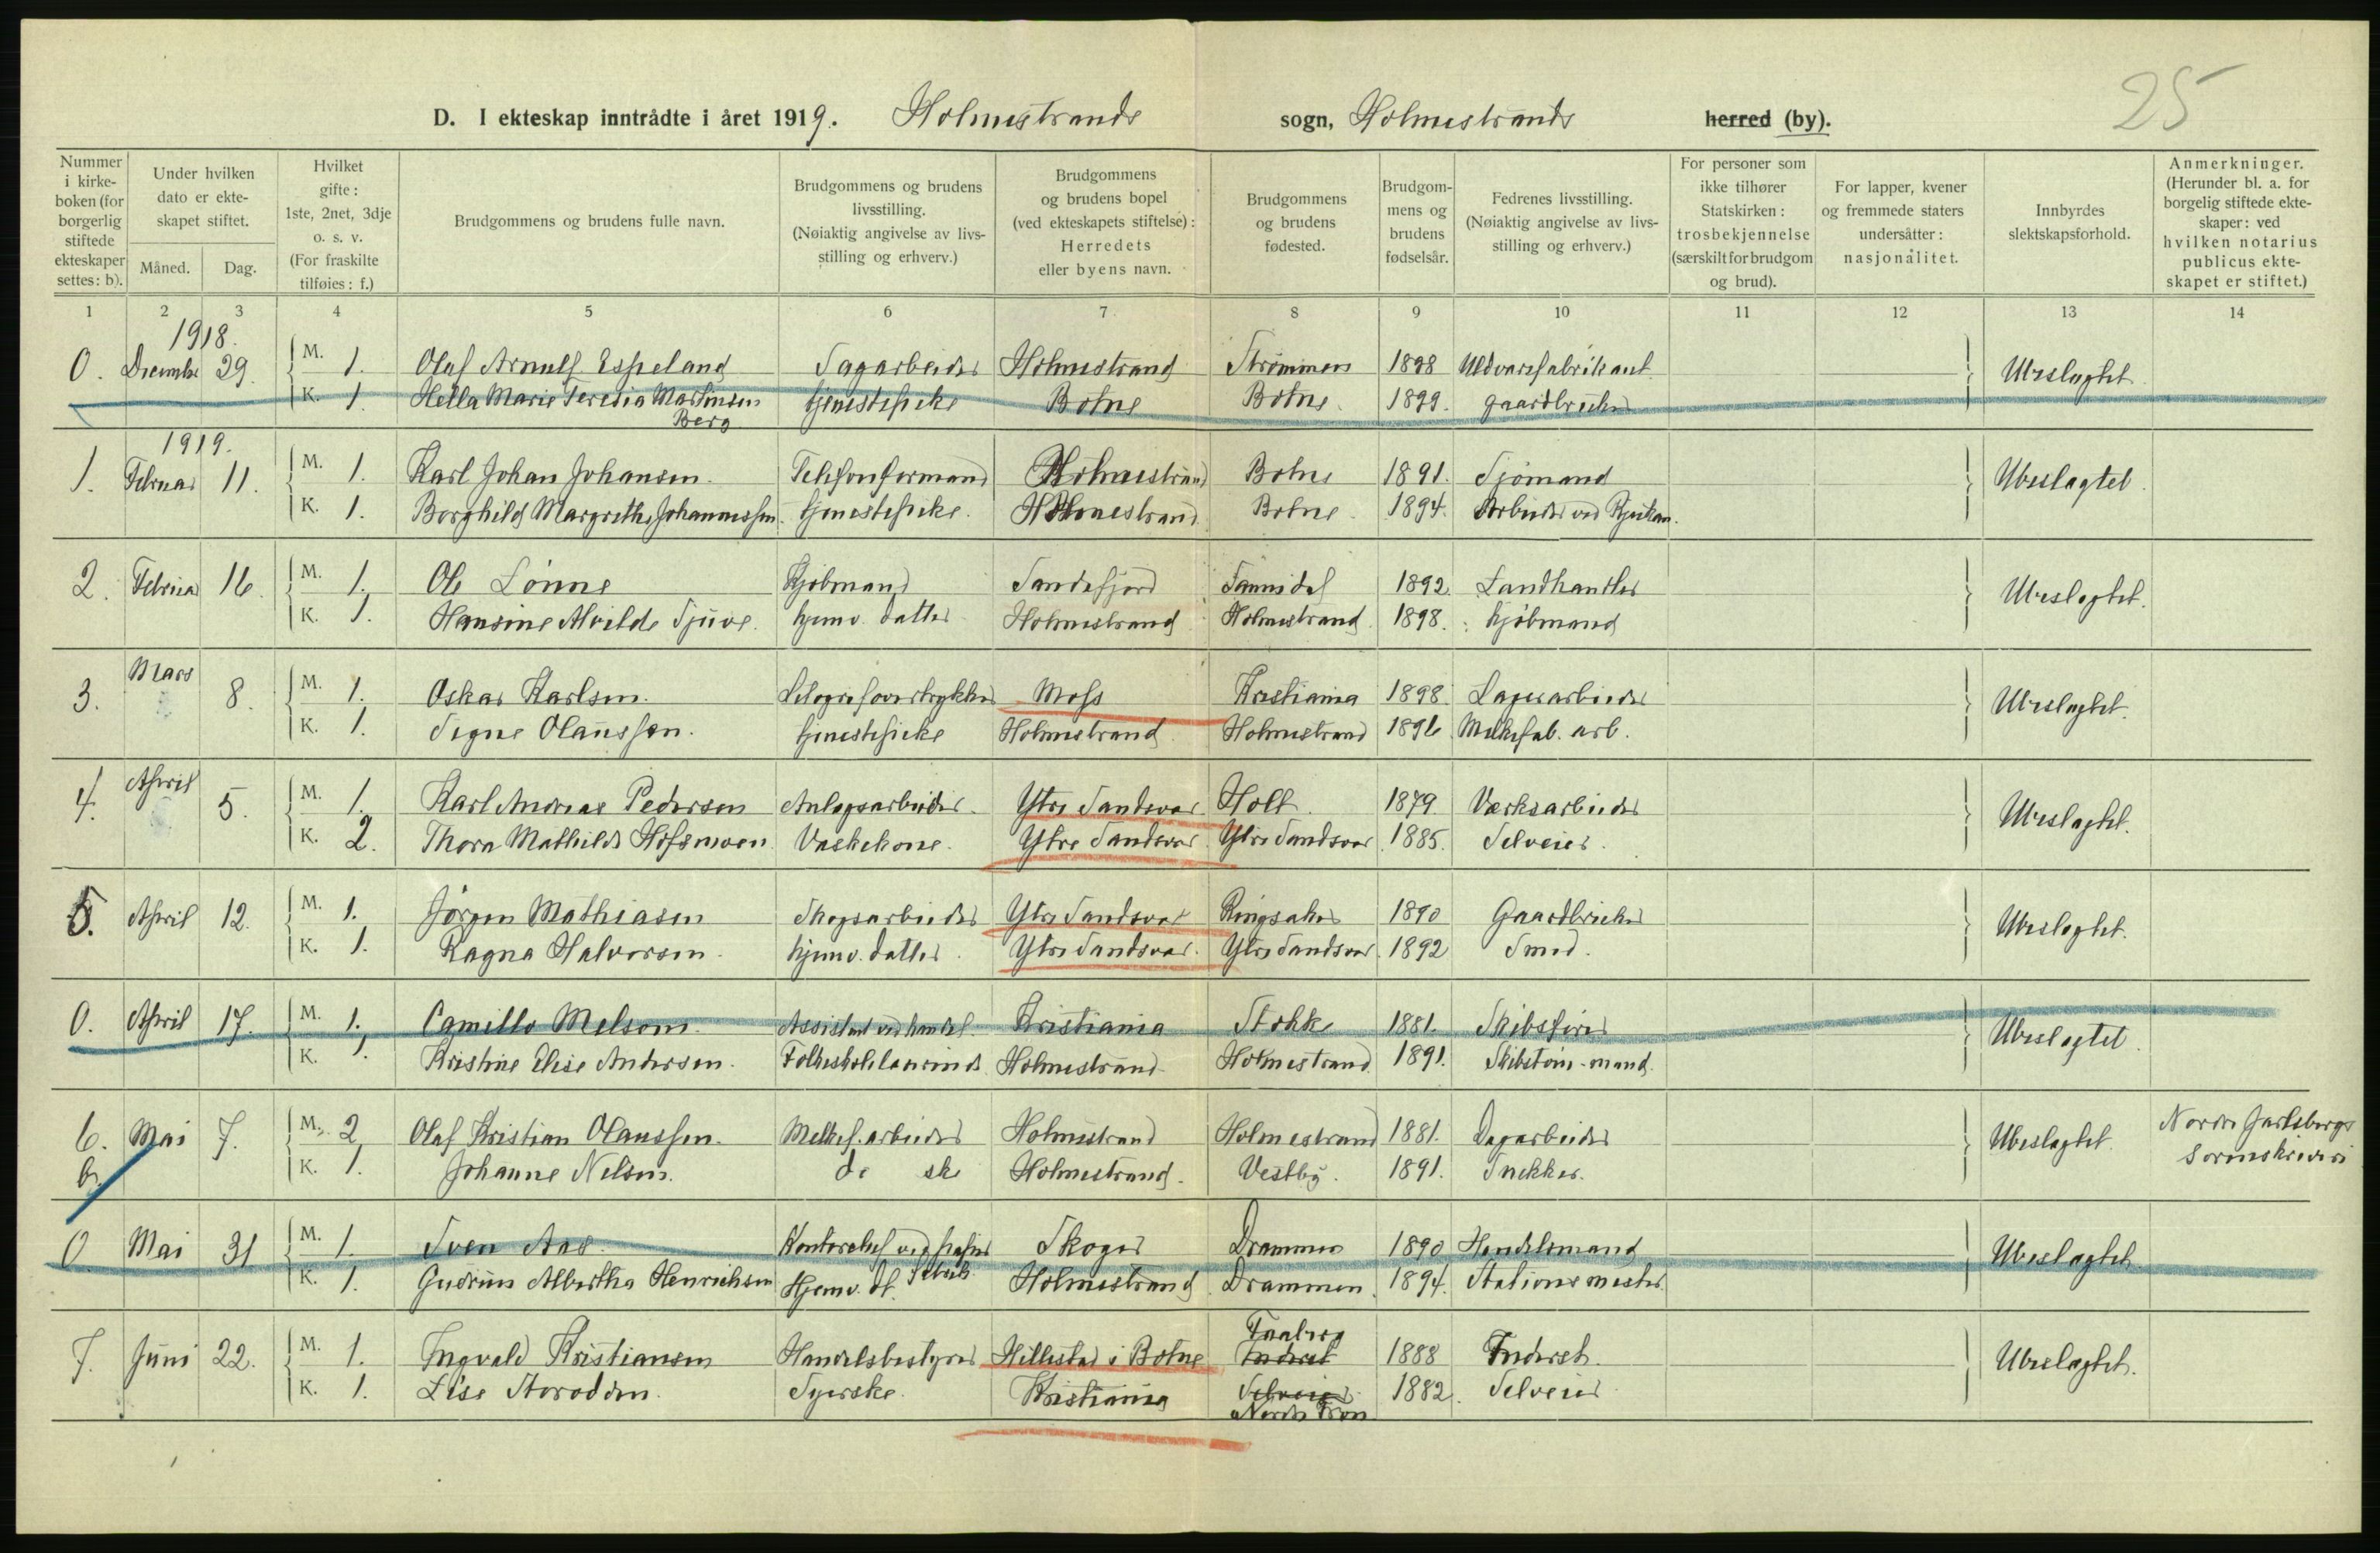 25
D. I ekteskap inntrådte i året 1919. Holmestrands sogn, Holmestrands herred (by).
Nummer i kirkeboken (for borgerlig stiftede ekteskaper settes: b).
Under hvilken dato er ekteskapet stiftet.
Måned. Dag.
Hvilket gifte: 1ste, 2net, 3dje o. s. v. (For fraskilte tilføies: f.)
Brudgommens og brudens fulle navn.
Brudgommens og brudens livsstilling. (Nøiaktig angivelse av livsstilling og erhverv.)
Brudgommens og brudens bopel (ved ekteskapets stiftelse): Herredets eller byens navn.
Brudgommens og brudens fødested.
Brudgommens og brudens fødselsår.
Fedrenes livsstilling. (Nøiaktig angivelse av livsstilling og erhverv.)
For personer som ikke tilhører Statskirken: trosbekjennelse (særskilt for brudgom og brud).
For lapper, kvener og fremmede staters undersåtter: nasjonalitet.
Innbyrdes slektskapsforhold.
Anmerkninger. (Herunder bl. a. for borgelig stiftede ekteskaper: ved hvilken notarius publicus ekteskapet er stiftet.)
1 2 3 4 5 6 7 8 9 10 11 12 13 14
1918.
0. Decembr 29. M. 1. Olaf Arnulf Espeland Sagarbeider Holmestrand Strømmen 1898 Uldvarefabrikant Ubeslagtet
K. 1 Hella Marie Teresia Martinsen Berg tjenestepike Botne Botne. 1899. gaardbruker
1919.
1. Februar 11. M. 1. Karl Johan Johansen. Telefonformand Holmestrand Botne 1891. Sjømand Ubeslagtet
K. 1. Borghild Margrethe Johannessen. tjenestepike. Holmestrand Botne 1894. Arbeider ved Rjukan.
2. Februar 16. M. 1. Ole Lønne Kjøbmand Sandefjord Sannidal 1892. Landhandler Ubeslagtet.
K. 1. Hansine Alvilde Tjuve. hjemv. datter Holmestrand Holmestrand 1898. kjøbmand
3. Mars 8. M. 1. Oskar Karlsen. Litografovertrykker Moss Kristiania 1898. Lagerarbeider Ubeslagtet.
K. 1. Signe Olaussen. tjenestepike Holmestrand Holmestrand 1896 Melkefab. arb.
4. April 5. M. 1. Karl Andreas Pedersen Anlegsarbeider. Ytre Sandsvær Holt 1879. Verksarbeider Ubeslagtet.
K. 2. Thora Mathilde Hofsmoen. Vaskekone. Ytre Sandsvær Ytre Sandsvær 1885. Selveier.
5. April 12. M. 1. Jørgen Mathiasen Skogsarbeider Ytre Sandsvær Ringsaker 1890 Gaardbruker Ubeslagtet.
K. 1. Ragna Halvorsen. hjemv. datter. Ytre Sandsvær. Ytre Sandsvær. 1892 Smed.
0. April 17. M. 1. Camillo Melsom. Assistent ved handel. Kristiania Stokke 1881. Skibsfører Ubeslagtet
K. 1. Kristine Elise Andersen. Folkeskolelærerinde Holmestrand Holmestrand 1891. Skibstøm.mand.
6. b. Mai 7. M. 2. Olaf Kristian Olaussen. Melkef. arbeider Holmestrand Holmestrand 1881. Dagarbeider Ubeslagtet. Nordre Jarlsbergs Sorenskriveri
K. 1. Johanne Nelsen. do ske Holmestrand. Vestby. 1891. Snekker.
0 Mai 31 M. 1. Sven Aas. Kontorchef ved papirfabrik Skoger Drammen 1890 Handelsmand Ubeslagtet
K. 1. Gudrun Albertha Henrichsen Hjemv. dt. Holmestrand Drammen. 1894. Stationsmester.
7. Juni 22. M. 1. Ingvald Kristiansen Handelsbestyrer Hillestad i Botne Faaberg Inderst 1888 Inderst. Ubeslagtet.
K. 1. Lise Storodden. Syerske. Kristiania Selveier Nordre Fron 1882. Selveier